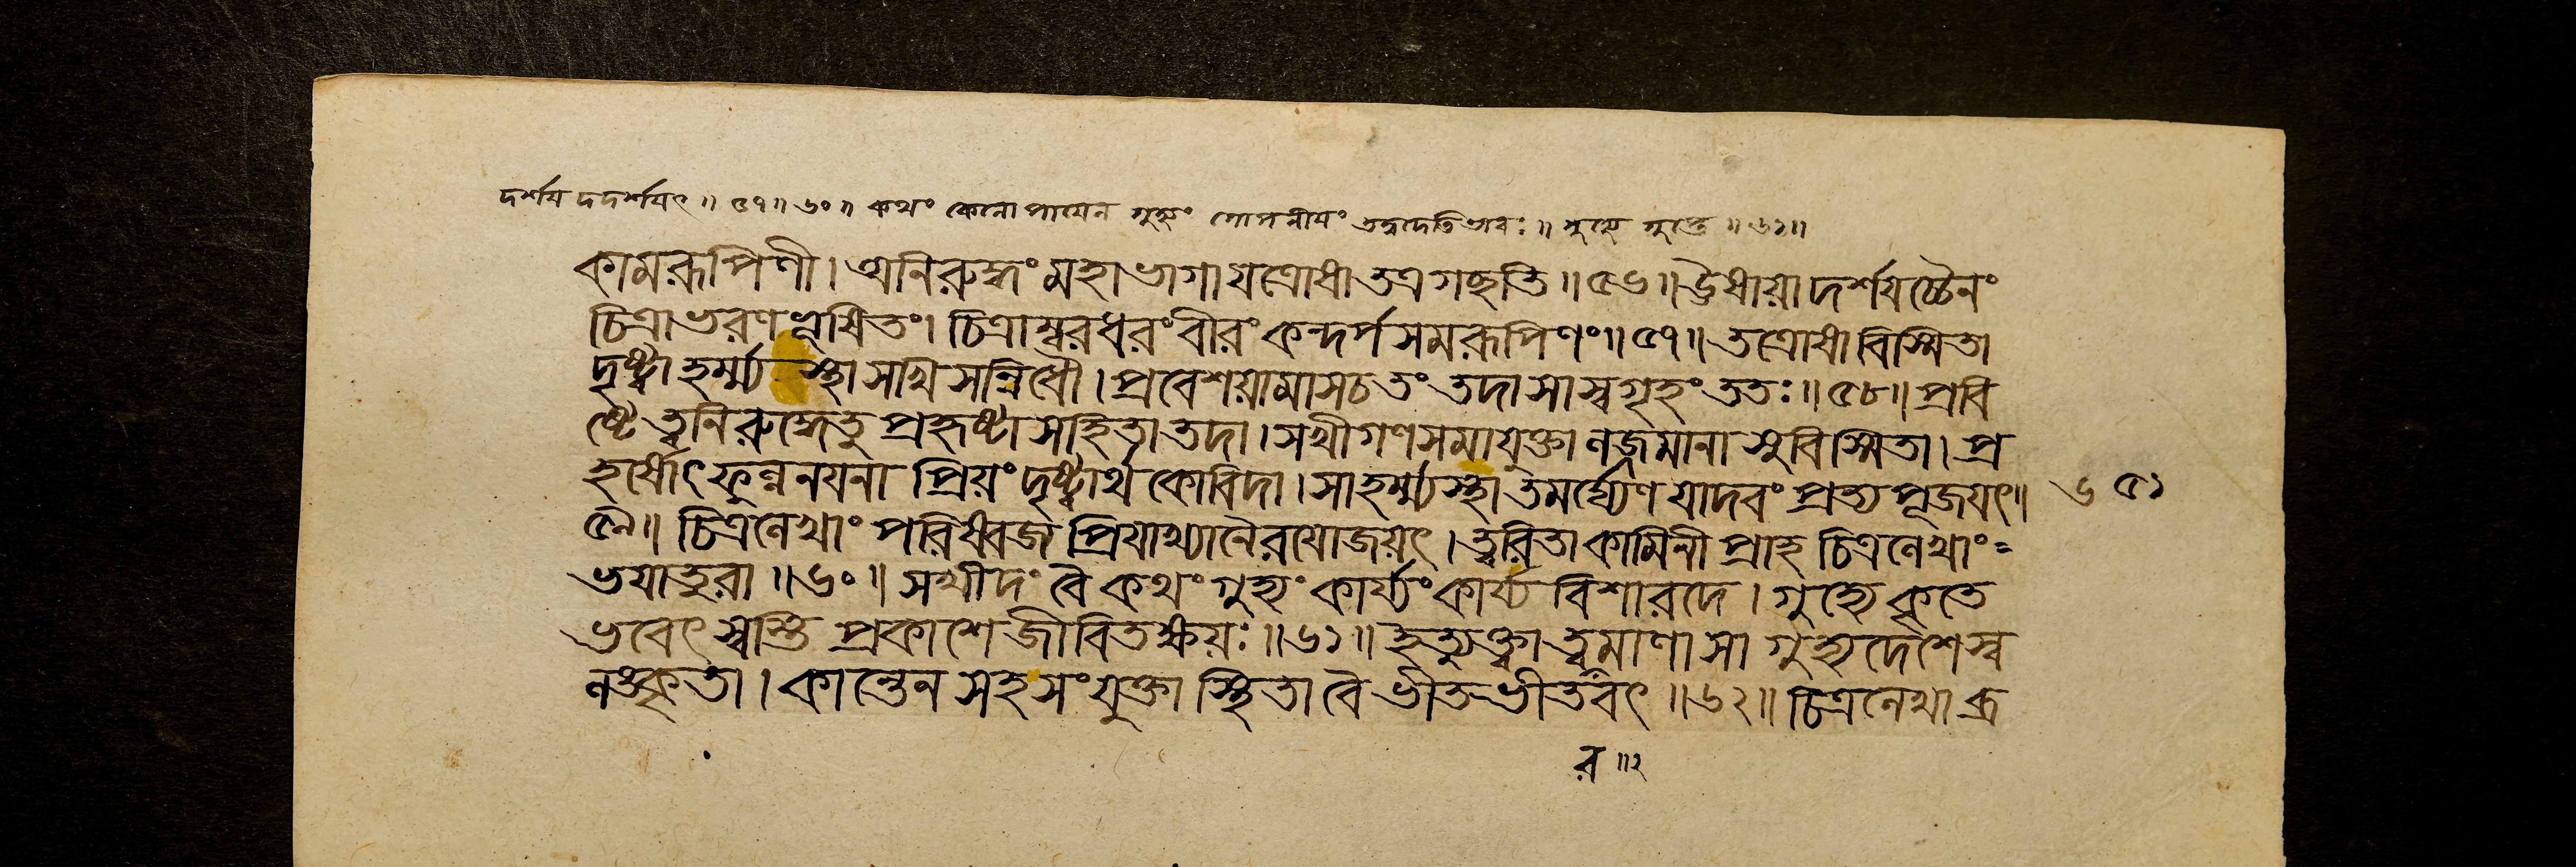 দর্শয দদর্শযৎ ॥ ৫৭ ॥ ৬০ ॥ কথং কেনোপাযেন গুহ্যং গোপনীযং তদ্বদেতিভাবঃ ॥ গুহ্যে গুপ্তে ॥ ৬১ ॥
কামরূপিণী । অনিরুদ্ধং মহাভাগা যত্রোষা তত্র গচ্ছতি ॥ ৫৬ ॥ উষায়া দর্শযচ্চৈনং
চিত্রাভরণভূষিতং । চিত্রাম্বরধরং বীরং কন্দর্পসমরূপিণং ॥ ৫৭ ॥ তত্রোষা বিস্মিতা
দৃষ্ট্বা হর্ম্ম্যস্থা সখিসন্নিধৌ । প্রবেশয়ামাসচ তং তদা সা স্বগৃহং ততঃ ॥ ৫৮ ॥ প্রবি
ষ্টে ত্বনিরুদ্ধেতু প্রহৃষ্টা সাহিতা তদা । সখীগণসমাযুক্তা লজ্জমানা সুবিস্মিতা । প্র
হর্ষোৎফুল্লনযনা প্রিয়ং দৃষ্ট্বার্থকোবিদা । সা হর্ম্ম্যস্থা তমর্ঘ্যেণ যাদবং প্রত্যপূজযৎ ॥
৬ ৫১
৫৯ ॥ চিত্রলেখাং পরিষ্বজ্য প্রিযাখ্যানৈরযোজয়ৎ । ত্বরিতা কামিনী প্রাহ চিত্রলেখাং =
ভযাতুরা ॥ ৬০ ॥ সখীদং বৈ কথং গুহ্যং কার্য্যং কার্য্যবিশারদে । গুহ্যে কৃতে
ভবেৎ স্বস্তি প্রকাশে জীবিতক্ষয়ঃ ॥ ৬১ ॥ ইত্যুক্ত্বা ত্বমাণা সা গুহ্যদেশে স্ব
লঙ্কৃতা । কান্তেন সহ সংযুক্তা স্থিতা বৈ ভীতভীতবৎ ॥ ৬২ ॥ চিত্রলেখা ব্র
র ॥ ২